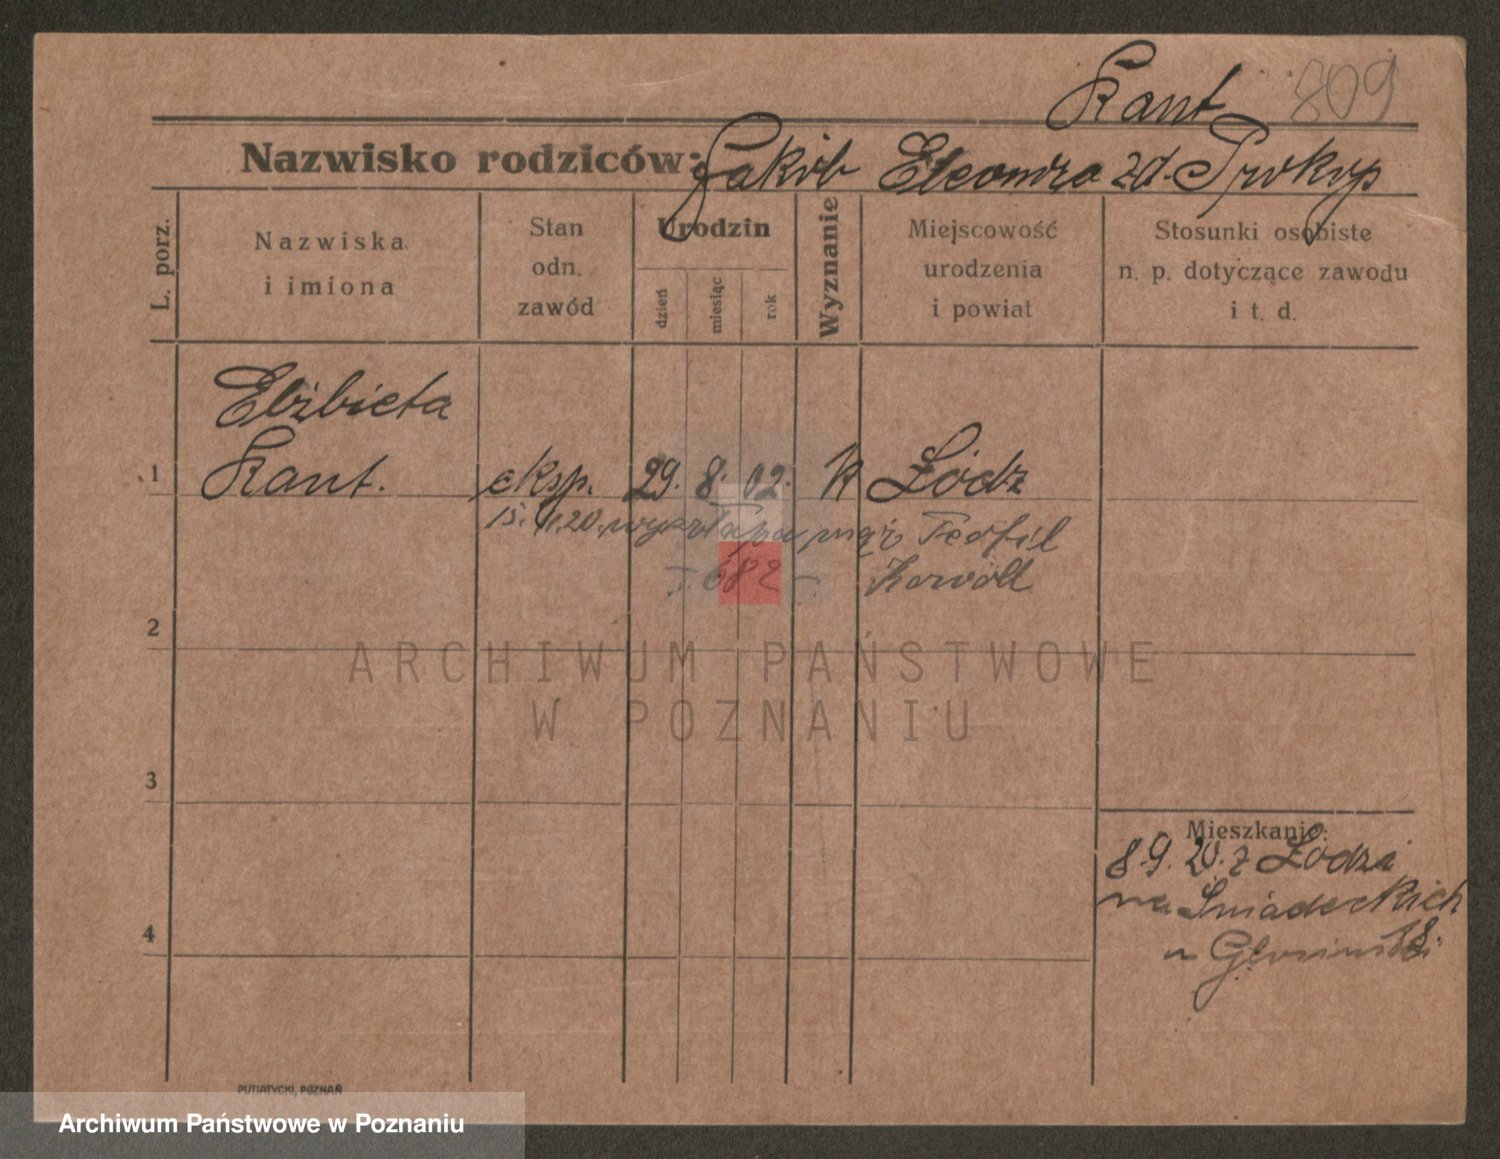 Kant 809
Nazwisko rodziców: Jakób Eleonora zd. Prokop
L. porz.
Nazwiska
i imiona
Stan
odn.
zawód
Urodzin
dzień
miesiąc
rok
Wyznanie
Miejscowość
urodzenia
i powiat
Stosunki osobiste
n. p. dotyczące zawodu
i t. d.
Elżbieta
1 Kant. eksp. 29. 8. 02. k Łódź
15. 11.20. wyszła za mąż Teofil
682
2
3
Mieszkanie:
8.9. 20. z Łodzi
na Śniadeckich
4
ARCHIWUM PAŃSTWOWE
W POZNANIU
PUTIATYCKI, POZNAŃ
Archiwum Państwowe w Poznaniu